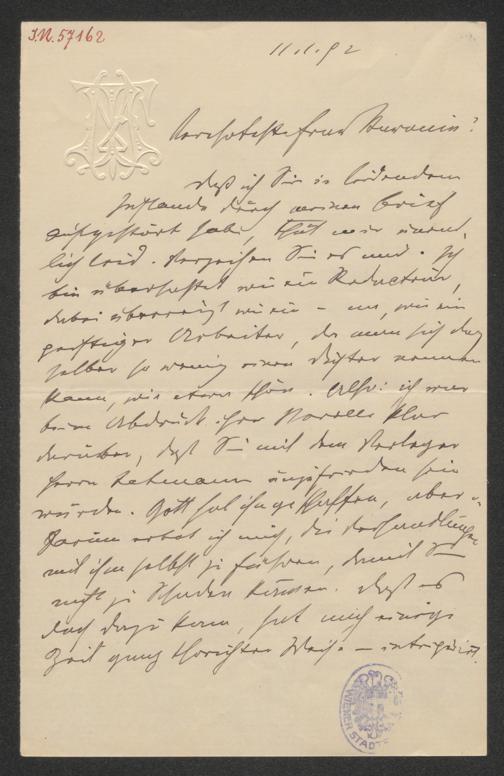 I.N. 57162
11.1.92
Verehrteste Frau Baronin!
Daß ich Sie in leidendem
Zustande durch meinen Brief
aufgestört habe, thut mir unend-
lich leid. Verzeihen Sie es mir. Ich
bin überhastet wie ein Redacteur,
dabei überreizt wie ein – na, wie ein
geistiger Arbeiter, der man sich doch
selber so wenig einen Dichter nennen
kann, wie etwa schön. Also: ich war
beim Abdruck Ihrer Novelle klar
darüber, daß Sie mit dem Verleger
Herrn Lehmann unzufrieden sein
würden. Gott hat ihn geschaffen, aber
darum erbot ich mich, die Verhandlungen
mit ihm selbst zu führen, damit Sie
nicht zu Schaden kämen. Daß es
doch dazu kam, hat mich einige
Zeit ganz thörichter Weise – intriguirt.
WIENER STADT